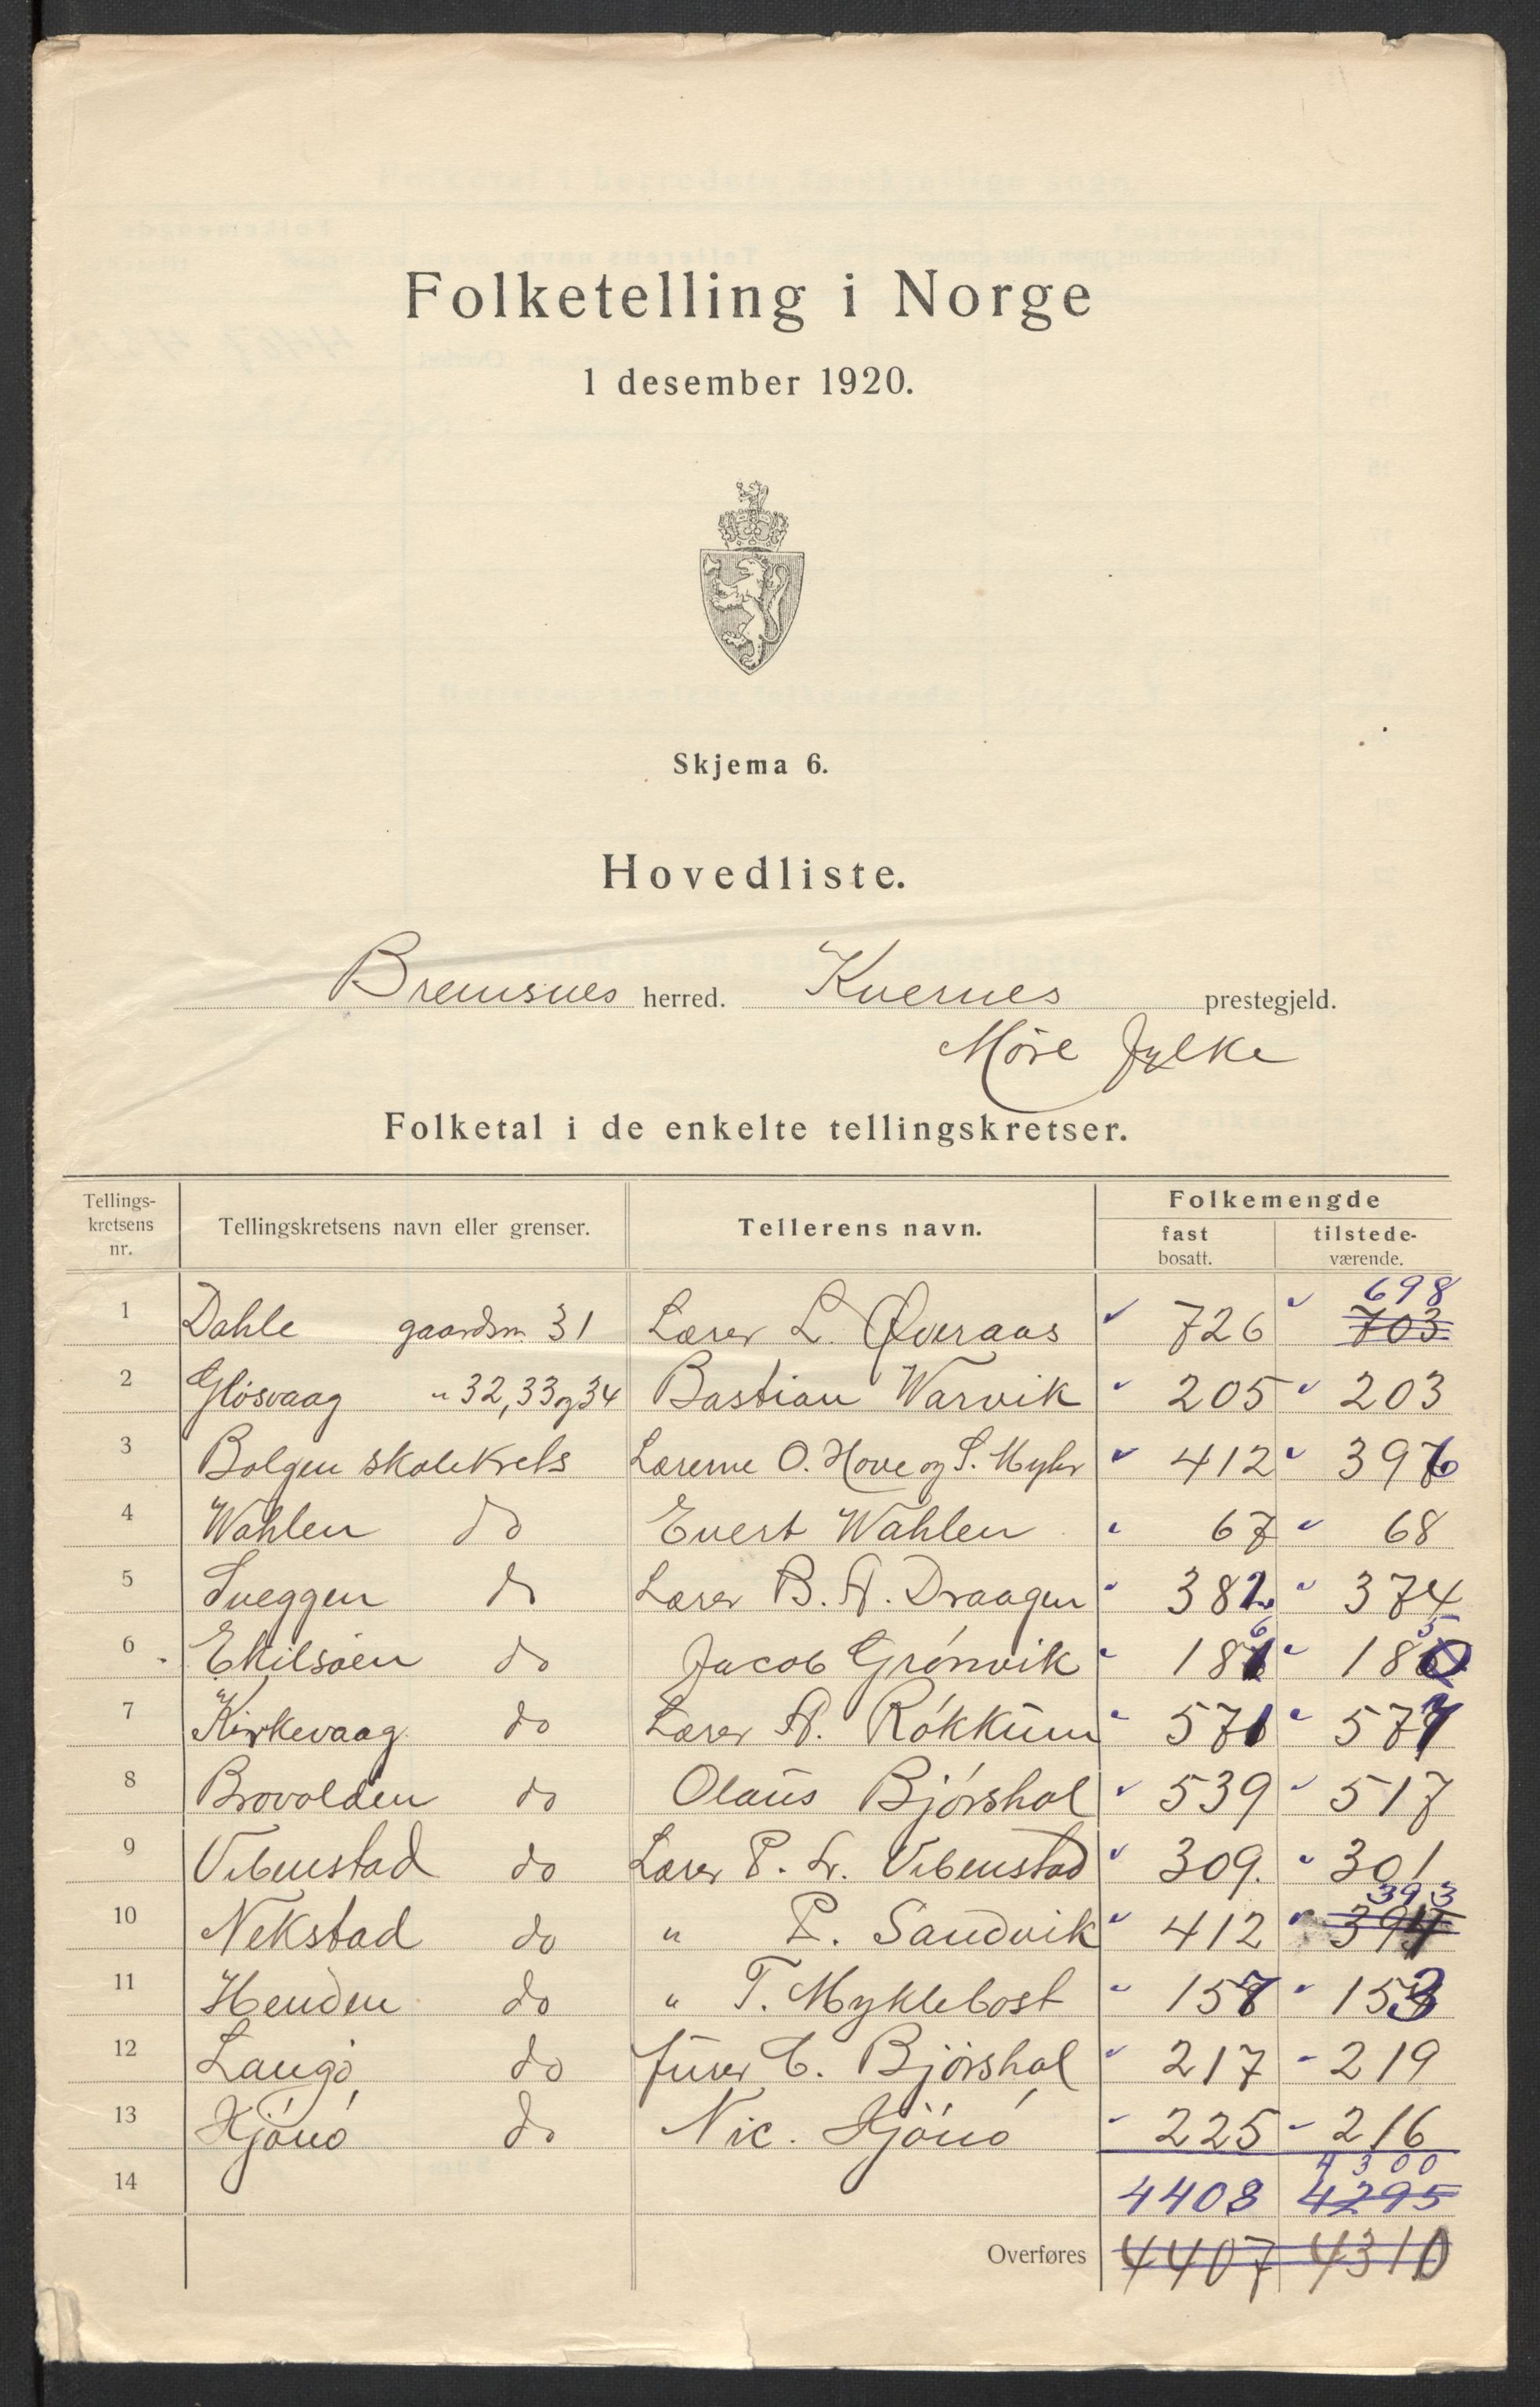 Folketelling i Norge
1 desember 1920.
Skjema 6.
Hovedliste.
Bremsnes herred. Kvernes prestegjeld.
Möre fylke
Folketal i de enkelte tellingskretser.
Tellings-kretsens nr. Tellingskretsens navn eller grenser. Tellerens navn. Folkemengde
fast bosatt. tilstede-værende.
698
1 Dahle gaardsn. 31 Lærer L. Øveraas 726 703
2 Glösvaag " 32, 33 og 34 Bastian Warvik 205 203
3 Bolgen skolekrets Lærerne O. Hove og S. Myhr 412 396
4 Wahlen do Evert Wahlen 67 68
5 Sveggen do Lærer B. A. Draagen 382 374
6 Ekilsöen do Jacob Grönvik 186 185
7 Kirkevaag do Lærer A. Rökkum 571 577
8 Brovolden do Olaus Bjórshol 539 517
9 Vebenstad do Lærer P. L. Vebenstad 309. 301
393
10 Nekstad do " P. Sandvik 412 394
11 Henden do " T. Myklebost 157 153
12 Langö do furer C. Bjórshol 217 219
13 Hjönö do Nic. Hjönö 225 216
4300
14 4408 4295
Overføres 4407 4310